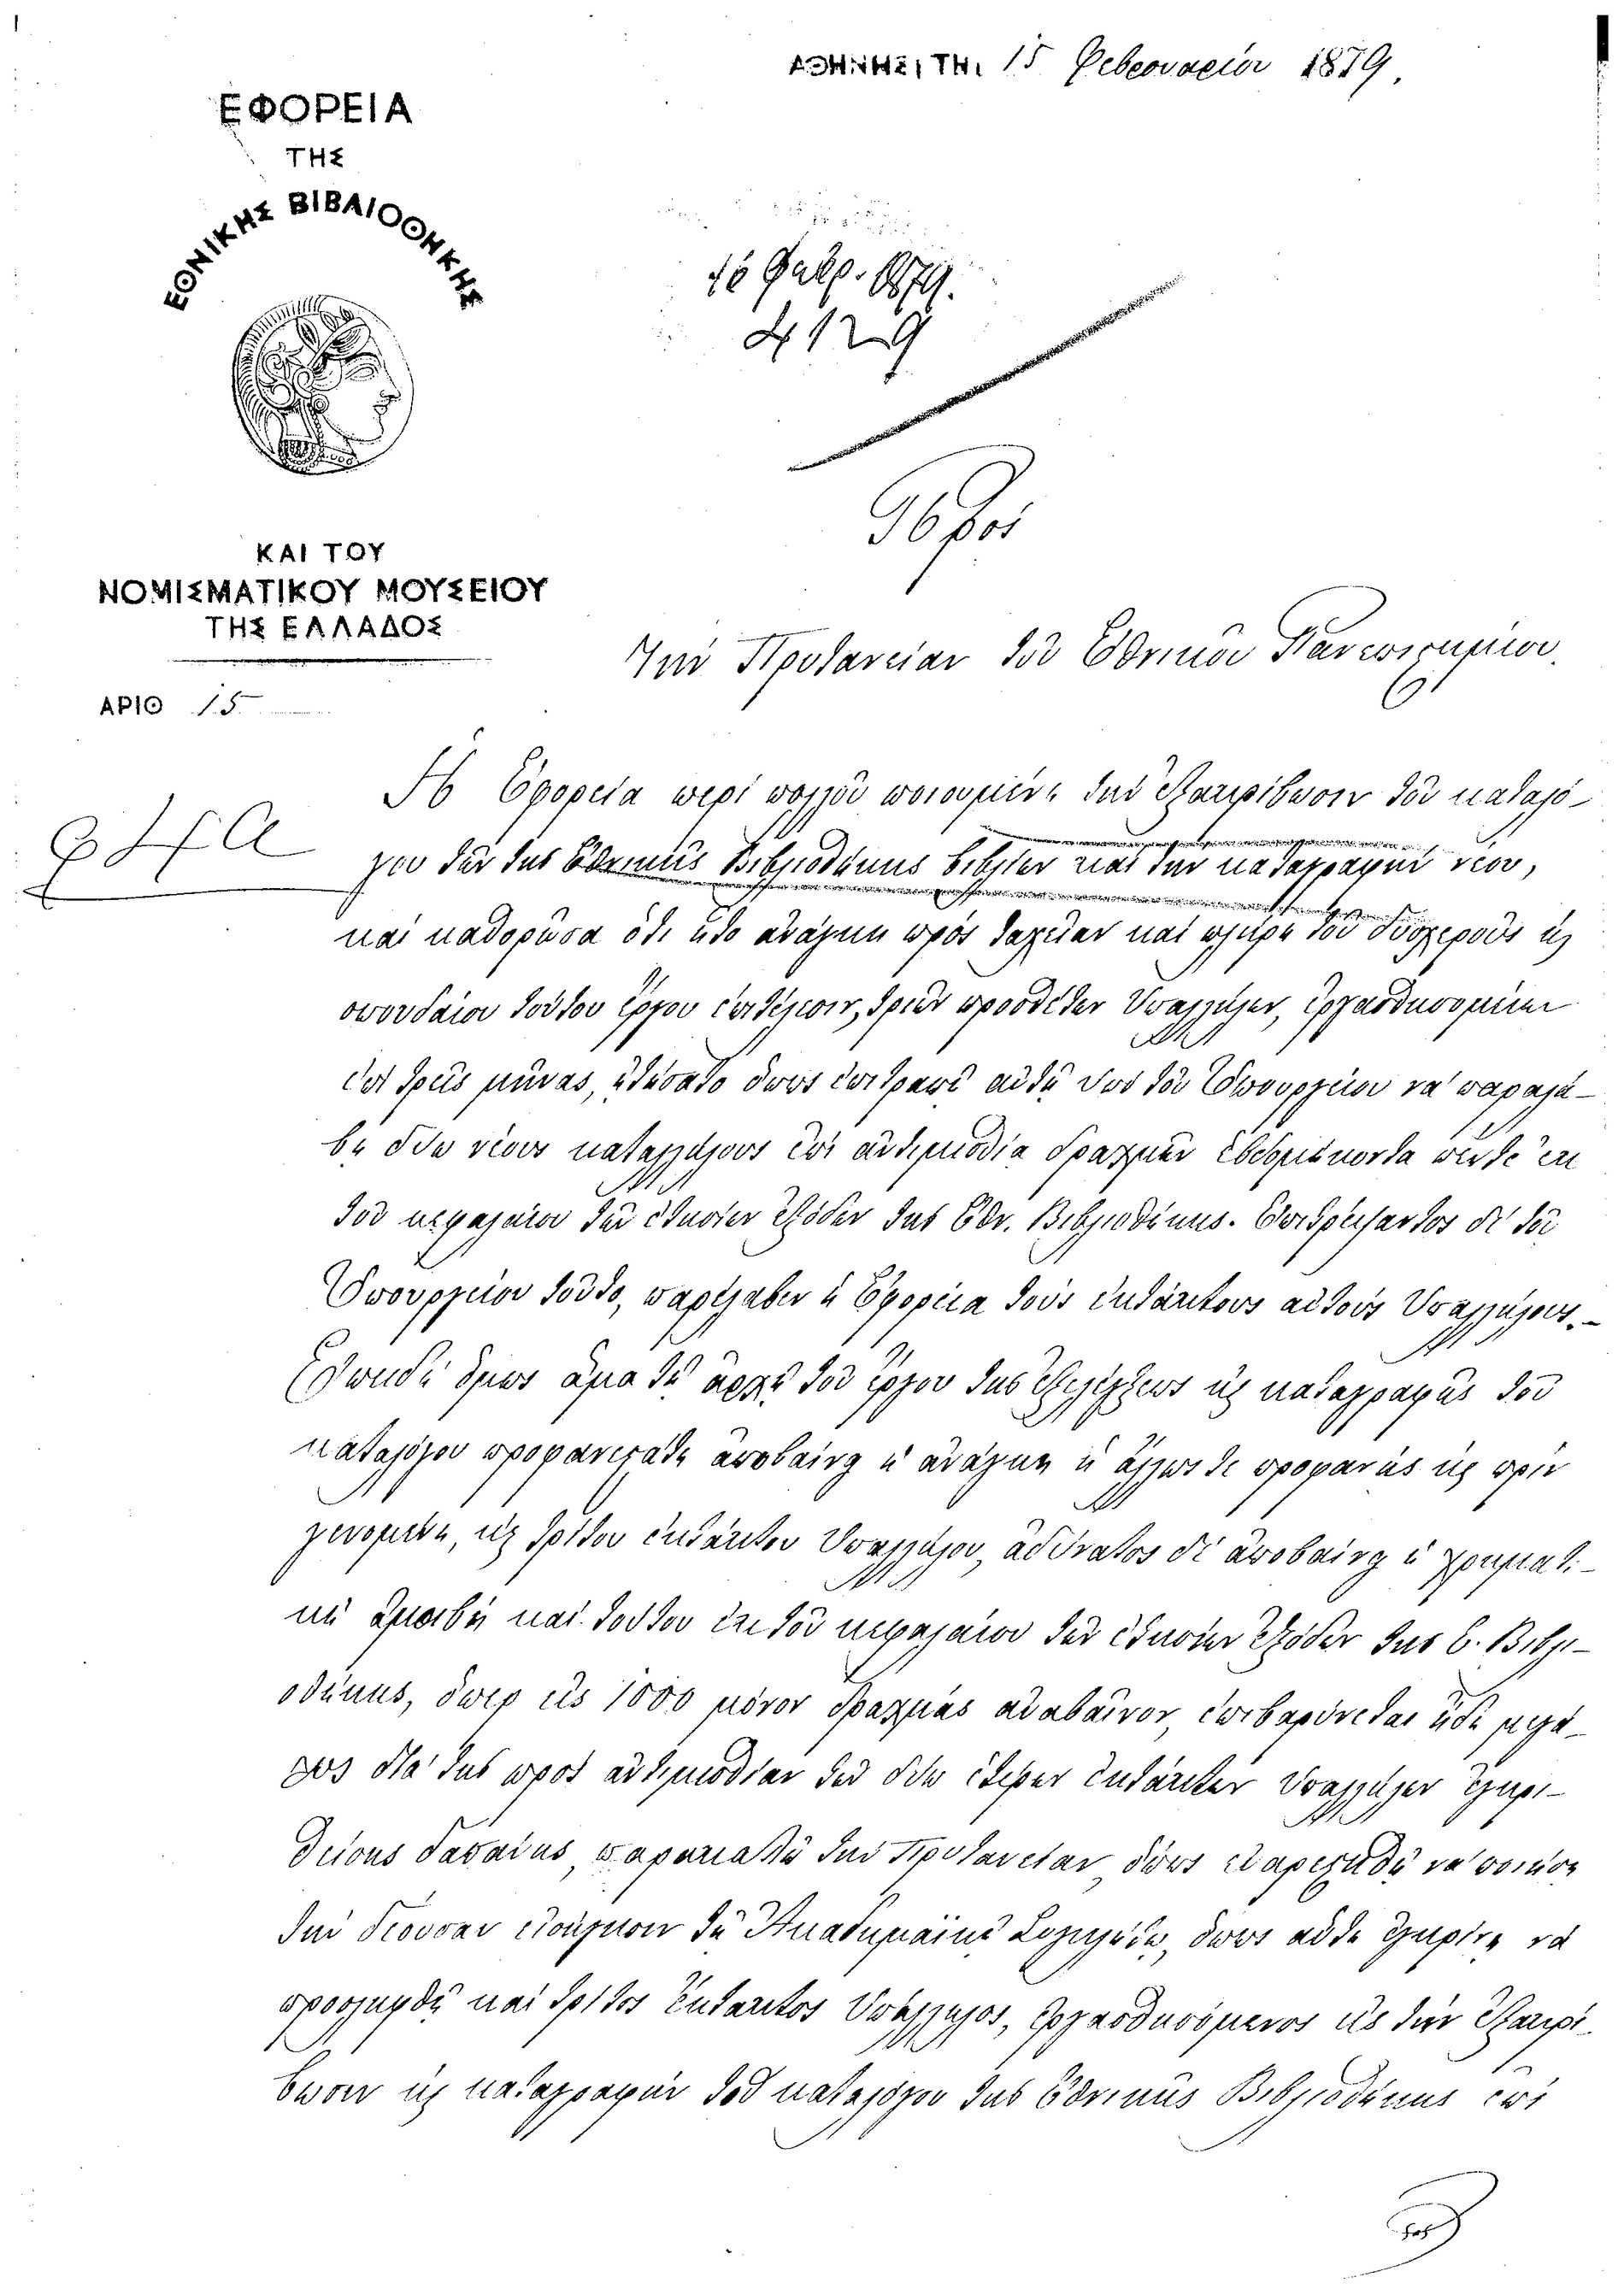 ΑΘΗΝΗΣΙ, ΤΗι 15 Φεβρουαρίου 1879.
ΕΦΟΡΕΙΑ
ΤΗΣ
ΕΘΝΙΚΗΣ ΒΙΒΛΙΟΘΗΚΗΣ
16 Φεβρ. 1879.
4129
Πρὸς
ΚΑΙ ΤΟΥ
ΝΟΜΙΣΜΑΤΙΚΟΥ ΜΟΥΣΕΙΟΥ
ΤΗΣ ΕΛΛΑΔΟΣ
Τὴν Πρυτανείαν τοῦ Ἐθνικοῦ Πανεπιστημίου.
ΑΡΙΘ 15
Ἡ Ἐφορεία περὶ πολλοῦ ποιουμένη τὴν ἐξακρίβωσιν τοῦ καταλό-
γου τῶν τῆς Ἐθνικῆς Βιβλιοθήκης βιβλίων καὶ τὴν καταγραφὴν νέου,
καὶ καθορῶσα ὅτι ἦτο ἀνάγκη πρὸς ταχεῖαν καὶ πλήρη τοῦ δυσχεροῦς κ
σπουδαίου τούτου ἔργου ἐκτέλεσιν, τριῶν προσθέτων Ὑπαλλήλων, ἐργασθησομένων
ἐπὶ τρεῖς μῆνας, ᾐτήσατο ὅπως ἐπιτραπῇ αὐτῇ ὑπὸ τοῦ Ὑπουργείου νὰ παραλά-
βῃ δύω νέους καταλλήλους ἐπὶ ἀντιμισθίᾳ δραχμῶν ἑβδομήκοντα πέντε ἐκ
τοῦ κεφαλαίου τῶν ἐτησίων ἐξόδων τῆς Ἐθν. Βιβλιοθήκης. Ἐπιτρέψαντος δὲ τοῦ
Ὑπουργείου τοῦτο, παρέλαβεν ἡ Ἐφορεία τοὺς ἐκτάκτους αὐτοὺς Ὑπαλλήλους.-
Ἐπειδὴ ὅμως ἅμα τῇ ἀρχῇ τοῦ ἔργου τῆς ἐξελέγξεως κ καταγραφῆς τοῦ
καταλόγου προφανεστάτη ἀπέβαινεν ἡ ἀνάγκη ἡ ἄλλως τε προφανὴς κ πρὶν
γενομένη, κ τρίτου ἐκτάκτου Ὑπαλλήλου, ἀδύνατος δὲ ἀποβαίνῃ ἡ χρηματι-
κὴ ἀμοιβὴ καὶ τούτου ἐκ τοῦ κεφαλαίου τῶν ἐτησίων ἐξόδων τῆς Ἐ. Βιβλι-
οθήκης, ὅπερ εἰς 1000 μόνον δραχμὰς ἀναβαῖνον, ἐπιβαρύνεται ἤδη μεγά-
λως διὰ τῆς πρὸς ἀντιμισθίαν τῶν δύω ἑτέρων ἐκτάκτων Ὑπαλλήλων ἐγκρι-
θείσης δαπάνης, παρακαλῶ τὴν Πρυτανείαν, ὅπως εὐαρεστηθῇ νὰ ποιήσῃ
τὴν δέουσαν εἰσήγησιν τῇ Ἀκαδημαϊκῇ Συγκλήτῳ, ὅπως αὕτη ἐγκρίνῃ νὰ
προσληφθῇ καὶ τρίτος ἔκτακτος Ὑπάλληλος, ἐργασθησόμενος εἰς τὴν ἐξακρί-
βωσιν κ καταγραφὴν τοῦ καταλόγου τῆς Ἐθνικῆς Βιβλιοθήκης ἐπὶ